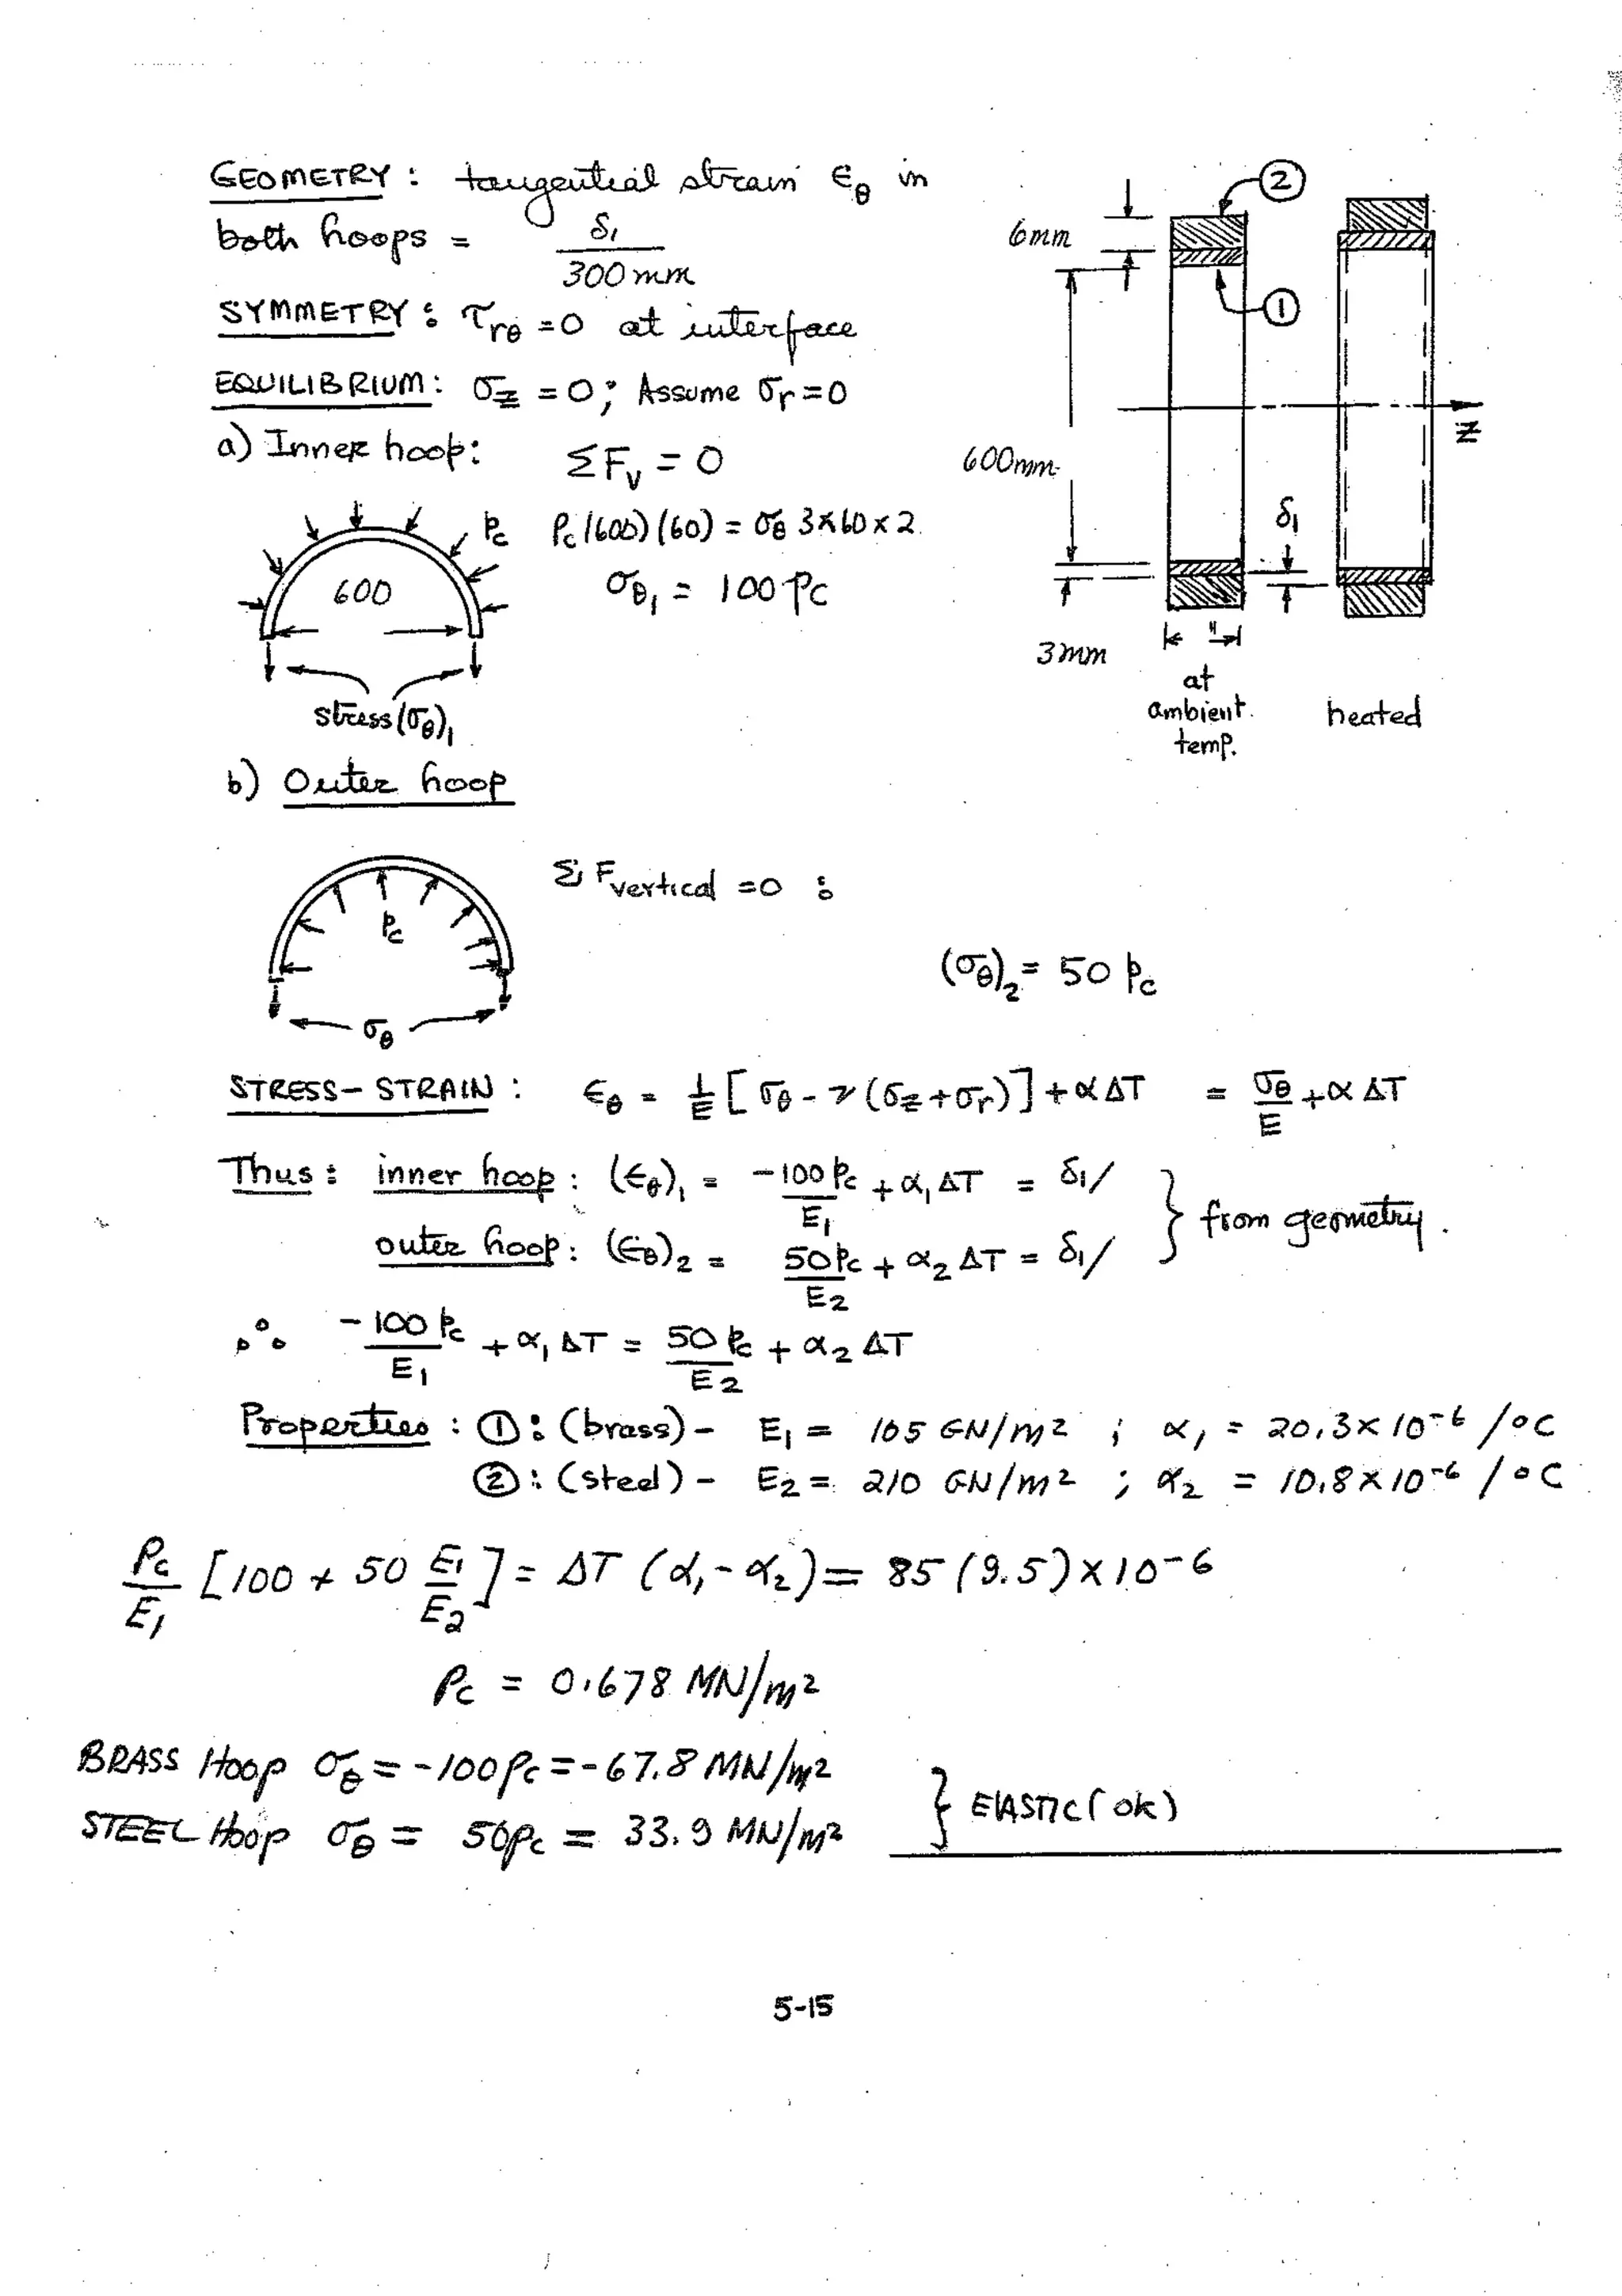 GEOMETRY : tangential strain ϵθ in
both hoops = δ1 / 300mm
SYMMETRY : τrθ = 0 at interface
EQUILIBRIUM : σz = 0 ; Assume σr = 0
a) Inner hoop : ΣFv = 0
Pc (600) (60) = σθ 3×60×2
600
pc
σθ1 = 100 pc
stress (σθ)1
2
6mm
1
600mm
Z
δ1
3mm
at ambient temp.
heated
b) Outer hoop
Σ Fvertical = 0 :
pc
(σθ)2 = 50 pc
σθ
STRESS - STRAIN : ϵθ = 1/E [σθ - ν (σz + σr)] + α ΔT = σθ/E + α ΔT
Thus : inner hoop : (ϵθ)1 = -100 pc/E1 + α1 ΔT = δ1/
outer hoop : (ϵθ)2 = 50 pc/E2 + α2 ΔT = δ1/
} from geometry .
∴ -100 pc/E1 + α1 ΔT = 50 pc/E2 + α2 ΔT
Properties : ① : (brass) - E1 = 105 GN/m2 ; α1 = 20.3×10-6 /°C
② : (steel) - E2 = 210 GN/m2 ; α2 = 10.8×10-6 /°C
Pc/E1 [100 + 50 E1/E2] = ΔT (α1 - α2) = 85 (9.5) × 10-6
Pc = 0.678 MN/m2
BRASS Hoop σθ = -100 pc = -67.8 MN/m2
STEEL Hoop σθ = 50pc = 33.9 MN/m2
} ELASTIC (ok)
5-15